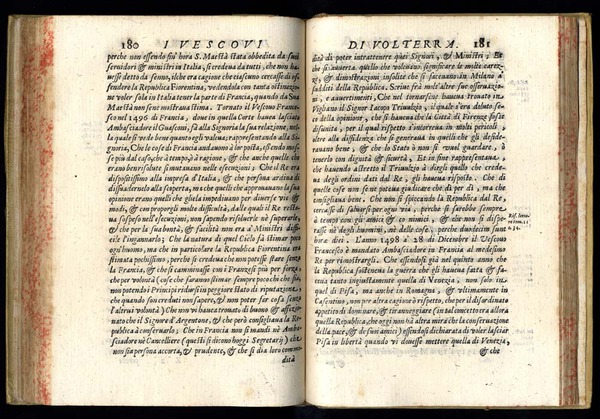 180 I VESCOVI
perche non essendo fin' hora S. Maestà stata obbedita da suoi
servidori & ministri in Italia, si credeva da tutti, che non ha-
vesse detto da senno, & che era cagione che ciascuno cercasse di of-
fendere la Republica Fiorentina, vedendola con tanta ostinazio-
ne voler sola in Italia tener la parte di Francia, quando da Sua
Maestà non se ne mostrava stima. Tornato il Vescovo France-
sco nel 1496 di Francia, dove in quella Corte haveva lasciato
Ambasciadore il Guasconi, fà alla Signoria la sua relazione, nel-
la quale si vede bene quanto egli valeva; rappresentando alla Si-
gnoria, Che le cose di Francia andavono à lor posta, essendo mos-
se più dal caso, che à tempo, ò à ragione, & che anche quelle che
erano ben risolute si mutavano nelle essecuzioni; Che il Re era
dispostissimo alla impresa d'Italia, & che persona ardiva di
dissuadernelo alla scoperta, ma che quelli che approvavano la sua
opinione erano quelli che gliela impedivano per diverse vie &
modi, & con proporgli molte difficultà, dalle quali il Re resta-
va sospeso nell' esecuzioni, non sapendo risolverle nè superarle,
& che per la sua bontà, & facilità non era à Ministri diffi-
cile l'ingannarlo; Che la natura di quel Cielo fà stimar poco
ogni huomo, ma che in particolare la Republica Fiorentina era
stimata pochissimo, perche si credeva che non potesse stare senza
la Francia, & che si camminasse con i Franzesi più per forza,
che per volontà (cose che saranno stimar sempre poco chi che sia,
non potendo i Principi ridursi in peggiore stato di riputazione,
che quando son creduti non sapere, & non poter far cosa senza
l'altrui volontà) Che non vi haveva trovato di buono & affezio-
nato che il Signore d'Argentone, & che però consigliava la Re-
publica à conservarlo; Che in Francia non si mandi nè Amba-
sciadore nè Cancelliere (questi si dicono hoggi Segretarij) che
non sia persona accorta, & prudente, & che si dia loro commo-
dità
DI VOLTERRA. 181
dità di poter intrattenere quei Signori, & Ministri; Et
che si avverta quello che volevano significare le molte carez-
ze, & dimostrazioni insolite che si facevano in Milano a'
sudditi della Republica. Scrive frà molt'altre sue osservazio-
ni, e avvertimenti, Che nel tornarsene haveva trovato in
Vigliano il Signor Iacopo Triulzio, il quale s'era doluto se-
co della opinione, che si haveva che la Città di Firenze fosse
disunita, per il qual rispetto s'incorreva in molti pericoli,
oltre alla diffidenza che si generava in quelli che gli deside-
ravano bene, & che lo Stato è non si vuol guardare, ò
tenerlo con dignità & sicurtà, Et in fine rappresentava,
che havendo alterato il Triulzio à dirgli quello che crede-
va degli ordini dati dal Re; gli haveva risposto. Che di
quelle cose non se ne poteva giudicare che di per dì, ma che
consigliava bene, Che non si spiccando la Republica dal Re,
cercasse di salvarsi per ogni via, perche si farebbe sempre
à tempo con gli amici & co nimici, & che non si dispe-
rasse nè degli huomini, nè delle cose, perche duodecim sunt
hora diei. L'anno 1498 à 28 di Dicembre il Vescovo
Francesco è mandato Ambasciadore in Francia al medesimo
Re per rimostrargli. Che essendosi già nel quinto anno che
la Republica sosteneva la guerra che gli haveva fatta & fa-
ceva tanto ingiustamente quella di Venezia, non solo in
quel di Pisa, ma anche in Romagna, & ultimamente in
Casentino, non per altra cagione ò rispetto, che per il disordinato
appetito di dominare, & tiranneggiare (in tal concetto era allora
quella Republica, che oggi non hà altra mira che la conservazione
della pace, & de suoi amici) essendosi dichiarata di voler lasciar
Pisa in libertà quando vi dovesse mettere quella di Venezia,
& che